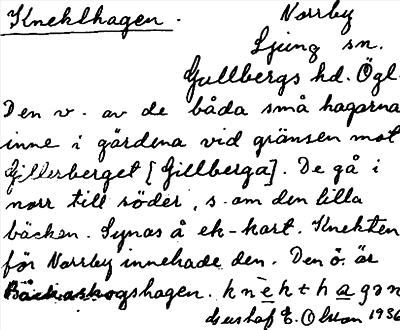 Knekthagen.
Norrby
Ljung sn.
Gullbergs hd. Ögl.
Den v. av de båda små hagarna
inne i gärdena vid gränsen mot
Gillersberget [Gillberga]. De gå i
norr till söder, s. om den lilla
bäcken. Synas å ek-kart. Knekten
för Norrby innehade den. Den ö. är
Bäckaskogshagen. knèkthagən
Gustaf E. Olsson 1936